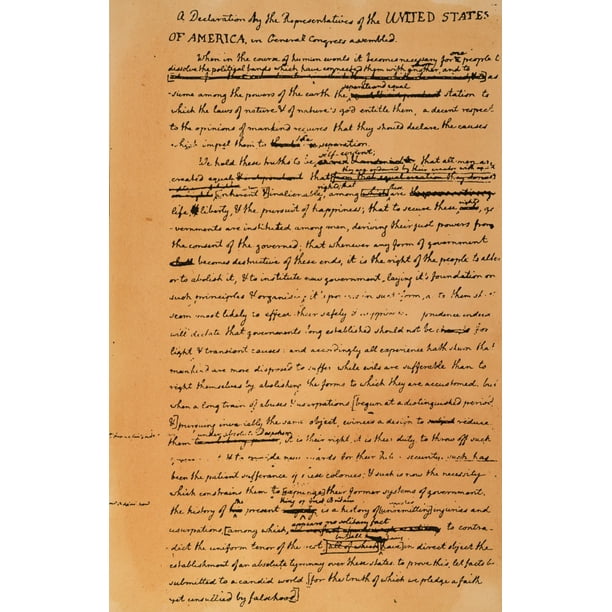 A Declaration by the Representatives of the UNITED STATES
OF AMERICA, in General Congress assembled.
When in the course of human events it becomes necessary for one people t
dissolve the political bands which have connected them with another, and to
as
separate and equal
sume among the powers of the earth the station to
which the laws of nature & of nature's god entitle them, a decent respect
to the opinions of mankind requires that they should declare the causes
which impel them to the separation.
self-evident;
We hold these truths to be that all men are
they are endowed by their creator with
created equal that
rights; that these
inherent & inalienable among which are
life liberty, & the pursuit of happiness; that to secure these rights, go
vernments are instituted among men, deriving their just powers from
the consent of the governed; that whenever any form of government
becomes destructive of these ends, it is the right of the people to alter
or to abolish it, & to institute new government, laying it's foundation on
such principles & organising it's in such form, to them sh
seem most likely to effect their safety & happiness. prudence indeed
will dictate that governments long established should not be for
light & transient causes: and accordingly all experience hath shewn that
mankind are more disposed to suffer while evils are sufferable than to
right themselves by abolishing the forms to which they are accustomed. but
when a long train of abuses & usurpations [begun at a distinguished period
&] pursuing invariably the same object, evinces a design to reduce
under absolute despotism
them it is their right, it is their duty to throw off such
& to provide new guards for their security. such has
been the patient sufferance of these colonies; & such is now the necessity
which constrains them to [expunge] their former systems of government.
the King of Great Britain
the history of present is a history of [unremitting] injuries and
usurpations, [among which, appears no solitary fact to contra-
dict the uniform tenor of the rest [all of which] [have] in direct object the
establishment of an absolute tyranny over these states. to prove this, let facts be
submitted to a candid world [for the truth of which we pledge a faith
yet unsullied by falsehood]